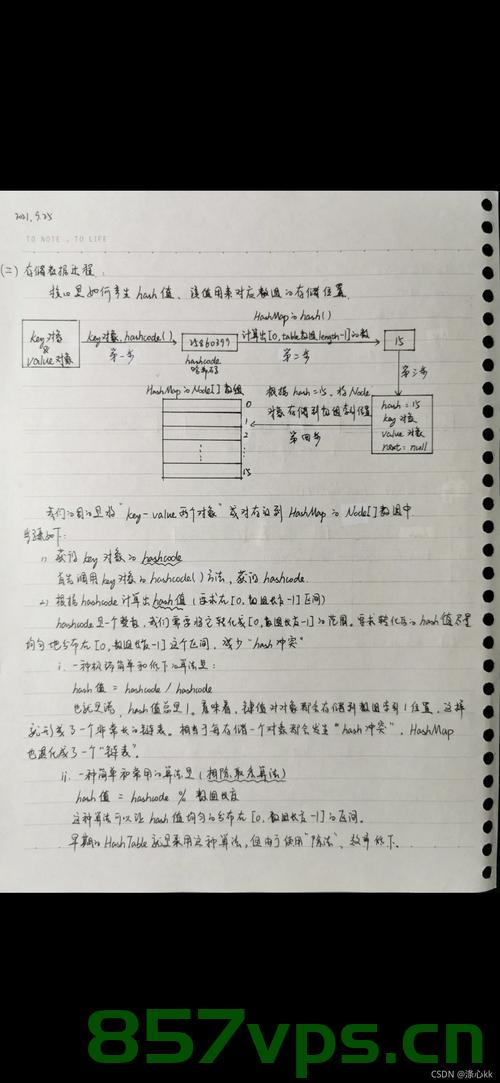 2021.9.25
TO NOTE , TO LIFE
(二) 存储数据过程:
核心是如何产生 hash 值、该值用来对应数组的存储位置.
HashMap的 hash()
key对象
&
value对象
key对象.hashcode()
第一步
25860399
hashcode
哈希码
计算出[0,table数组.length-1]的数
第二步
15
第三步
HashMap的 Node[] 数组
0
1
2
15
根据 hash=15, 将 Node
对象存储到数组索引位置
第四步
hash = 15
key 对象
value 对象
next: null
我们的目的是将 "key-value 两个对象" 成对存放到 HashMap 的 Node[] 数组中.
步骤如下:
1) 获得 key 对象的 hashcode
首先调用 key 对象的 hashcode() 方法, 获得 hashcode.
2) 根据 hashcode 计算出 hash 值 (要求在 [0, 数组长度-1] 区间)
hashcode 是一个整数, 我们需要将它转化成 [0, 数组长度-1] 的范围. 要求转化后的 hash 值尽量
均匀地分布在 [0, 数组长度-1] 这个区间, 减少 "hash 冲突"
i. 一种极端简单和低下的算法是:
hash 值 = hashcode / hashcode
也就是说, hash 值总是 1. 意味着, 键值对对象都会存储到数组索引 1 位置, 这样
就形成了一个非常长的链表. 相当于每存储一个对象都会发生 "hash 冲突", HashMap
也退化成了一个 "链表".
ii. 一种简单和常用的算法是 (相除取余算法)
hash 值 = hashcode % 数组长度
这种算法可以让 hash 值均匀的分布在 [0, 数组长度-1] 的区间.
早期的 HashTable 就是采用这种算法, 但由于使用 "除法", 效率低下.
857vps.cn
CSDN @涤心kk